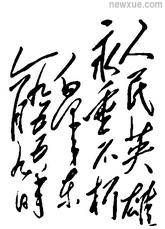 newxue.com
人民英雄
永垂不朽
毛泽东